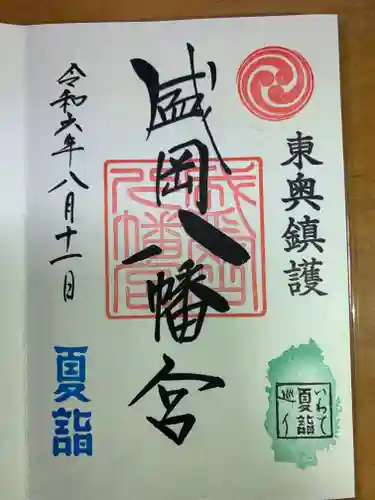 東奥鎮護
盛岡八幡宮
令和六年八月十一日
夏詣
いわて
夏詣
巡り